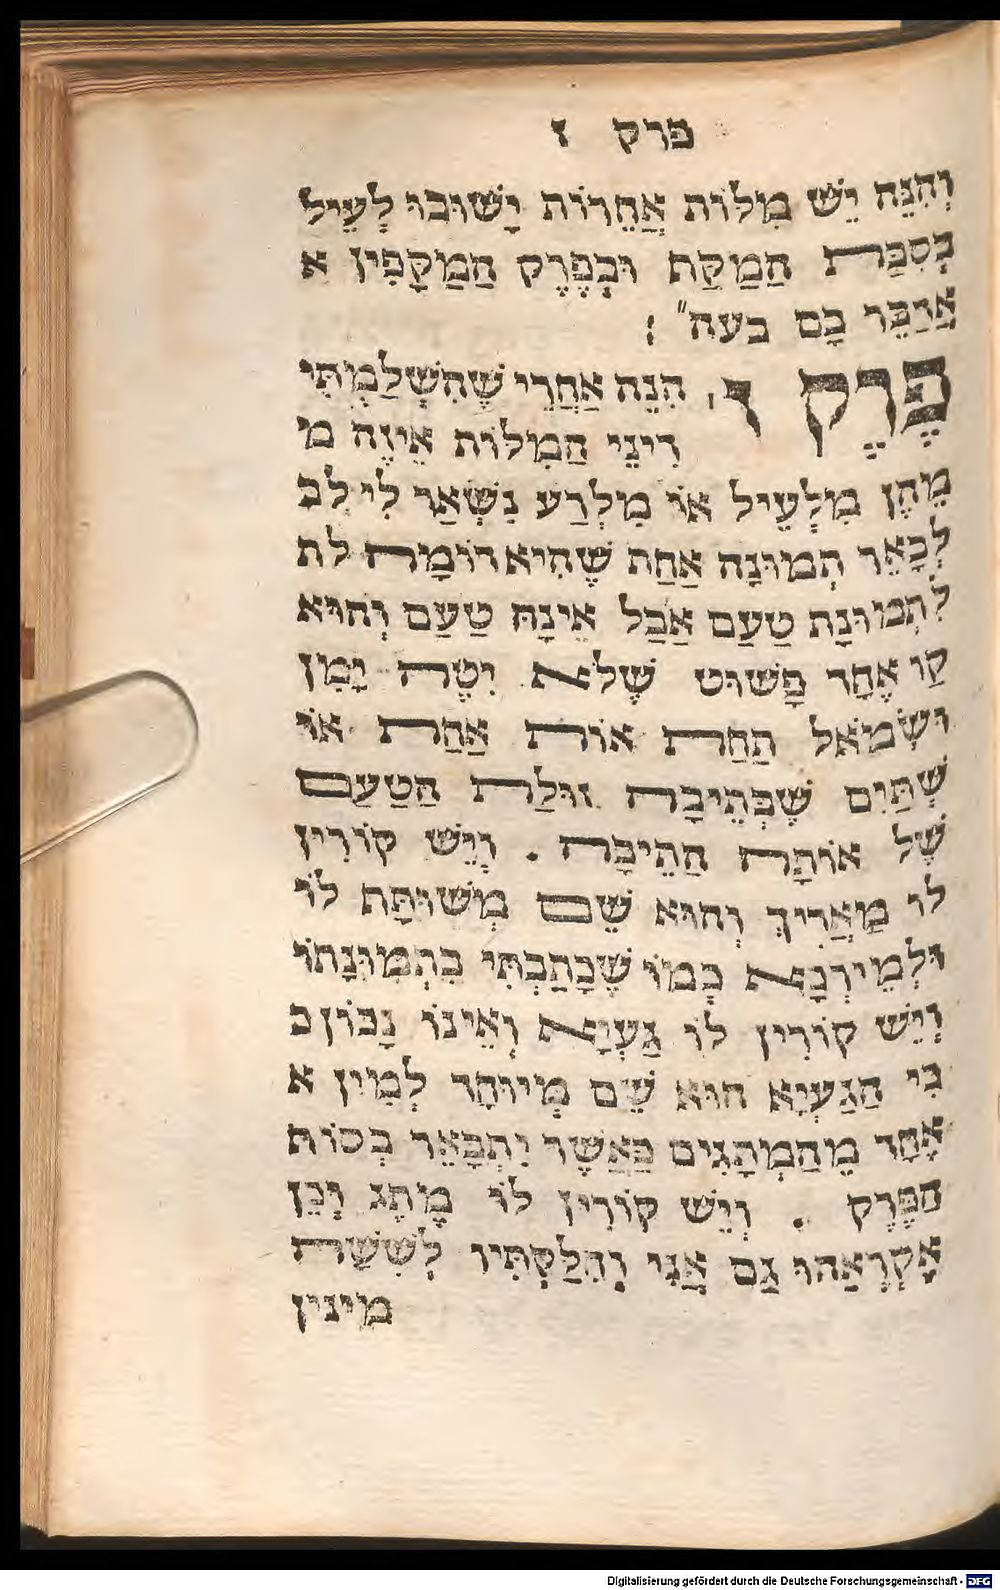 פרק ז
וְהִנֵּה יֵשׁ מִלּוֹת אֲחֵרוֹת יָשׁוּבוּ לְעֵיל
בְּסִבַּת הַמַקַּף וּבְפֶרֶק הַמַקָפִין א
אֲדַבֵּר בָּם בעה״ :
פֶּרֶק ז, הִנֵּה אַחֲרֵי שֶׁהִשְׁלַמְתִּי
דִינֵי הַמִלּוֹת אֵיזֶה מ
מֵהֶן מִלְּעֵיל אוֹ מִלְּרַע נִשְׁאַר לִי לְב
לְבָאֵר תְּמוּנָה אַחַת שֶׁהִיא דוֹמָה לת
לִתְמוּנַת טַעַם אֲבָל אֵינָהּ טַעַם וְהוּא
קַו אֶחָד פָּשׁוּט שֶׁלֹּא יִטֶּה יָמִן
וּשְׂמֹאל תַּחַת אוֹת אַחַת אוֹ
שְׁתַּיִם שֶׁבְּתֵיבָה זוּלַת הַטַעַם
שֶׁל אוֹתָהּ הַתֵּיבָה . וְיֵשׁ קוֹרִין
לוֹ מַאֲרִיךְ וְהוּא שֵׁם מְשׁוּתָּף לוֹ
וּלְמֵירְכָא כְּמוֹ שֶׁכָּתַבְתִּי בִּתְמוּנָתוֹ
וְיֵשׁ קוֹרִין לוֹ גַּעְיָא וְאֵינוֹ נָכוֹן כ
כִּי הַגַּעְיָא הוּא שֵׁם מְיוּחָד לְמִין א
אֶחָד מֵהַמְתָגִים כַּאֲשֶׁר יִתְבָּאֵר בְּסוֹף
הַפֶּרֶק . וְיֵשׁ קוֹרִין לוֹ מֶתֶג וְכֵן
אֶקְרָאֵהוּ גַם אֲנִי וְחִלַקְתִּיו לְשִׁשָּׁה
מינין
Digitalisierung gefördert durch die Deutsche Forschungsgemeinschaft - DFG